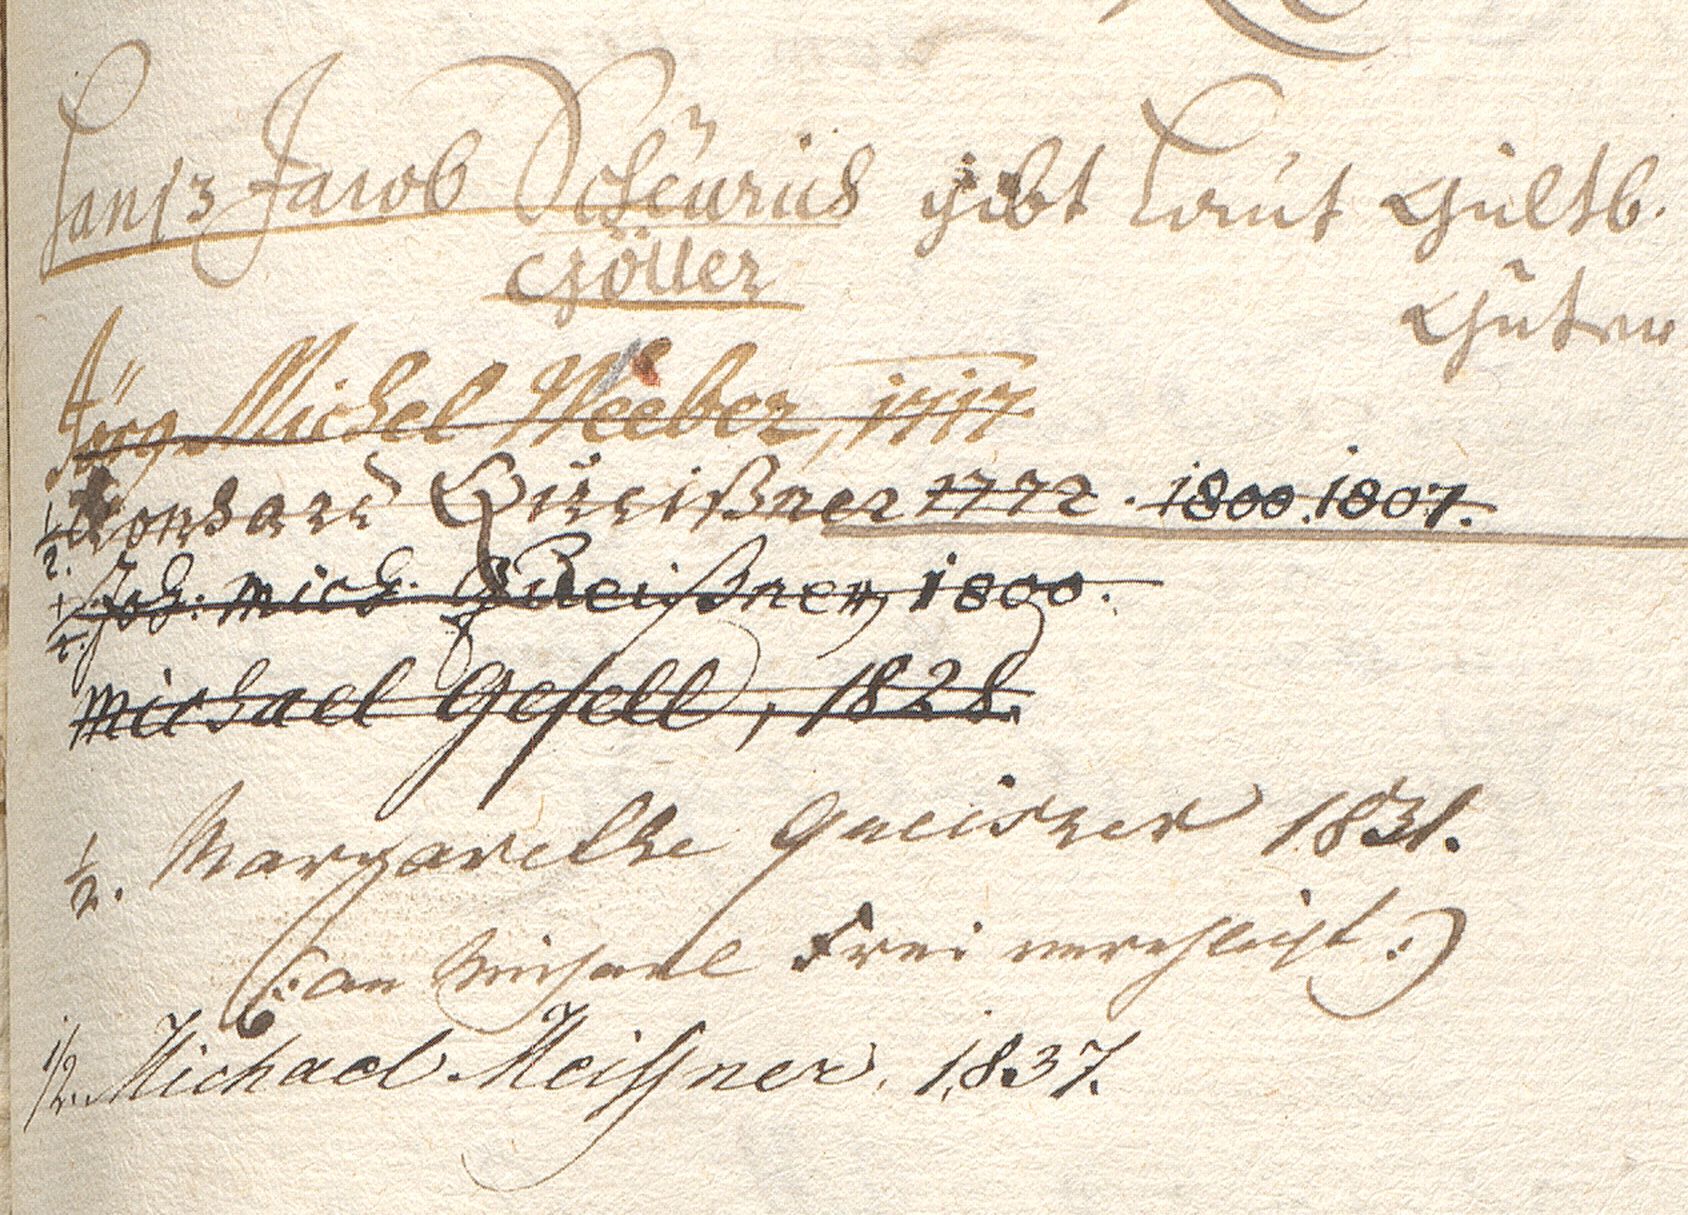 Hanß Jacob Scheurius gibt Laut Gültb.
Göller
Güter
Jörg Michel Weeber, 1717
1/2. Leonhard Gneißner 1772. 1800. 1807.
1/2. Joh. Mich. Gneißner, 1800.
Michael Gesell, 1828.
1/2. Margarethe Gneisner 1831.
(: an Michael Frei verehlicht :)
1/2. Michael Meissner. 1837.